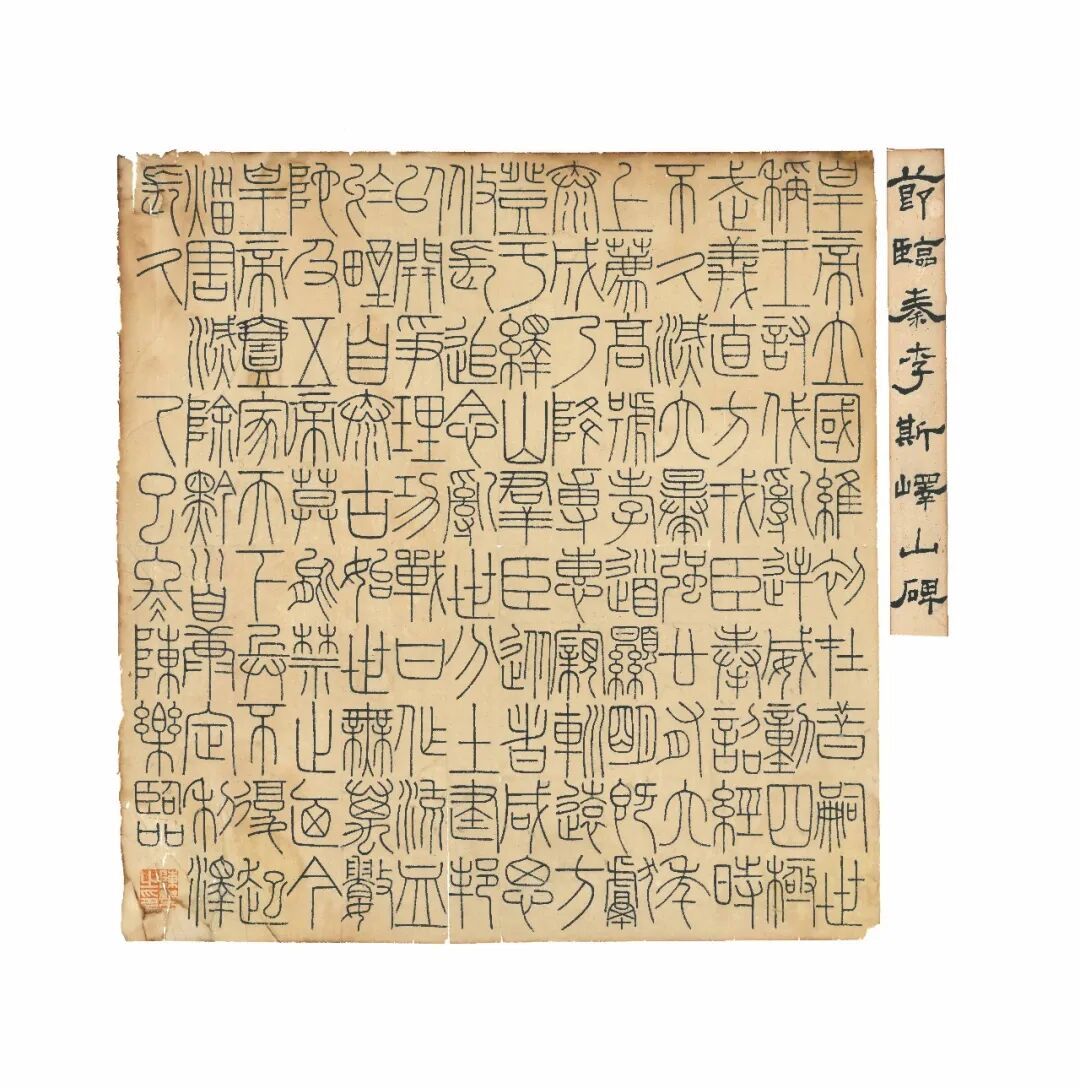 節臨秦李斯嶧山碑
皇帝立國維初在昔嗣世
稱王討伐亂逆威動四極
武義直方戎臣奉詔經時
不久滅六暴強廿有六年
上薦高號孝道顯明既獻
泰成乃降專惠寴巡遠方
登于繹山群臣從者咸思
攸長追念亂世分土建邦
以開爭理功戰日作流血
於野自泰古始世無萬數
阤及五帝莫能禁止迺今
皇帝壹家天下兵不復起
災害滅除黔首康定利澤
長久 乙巳冬陳樂臨